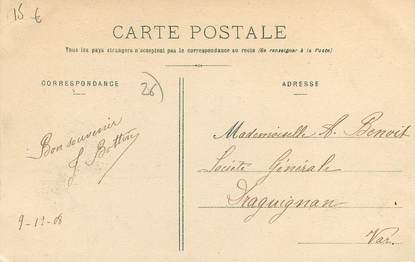 15 €
CARTE POSTALE
Tous les pays étrangers n'acceptent pas la correspondance au recto (Se renseigner à la Poste)
CORRESPONDANCE
26
ADRESSE
Mademoiselle A. Benoit
Société Générale
Draguignan
Var.
Bon souvenir
J. Bottin
9-12-08